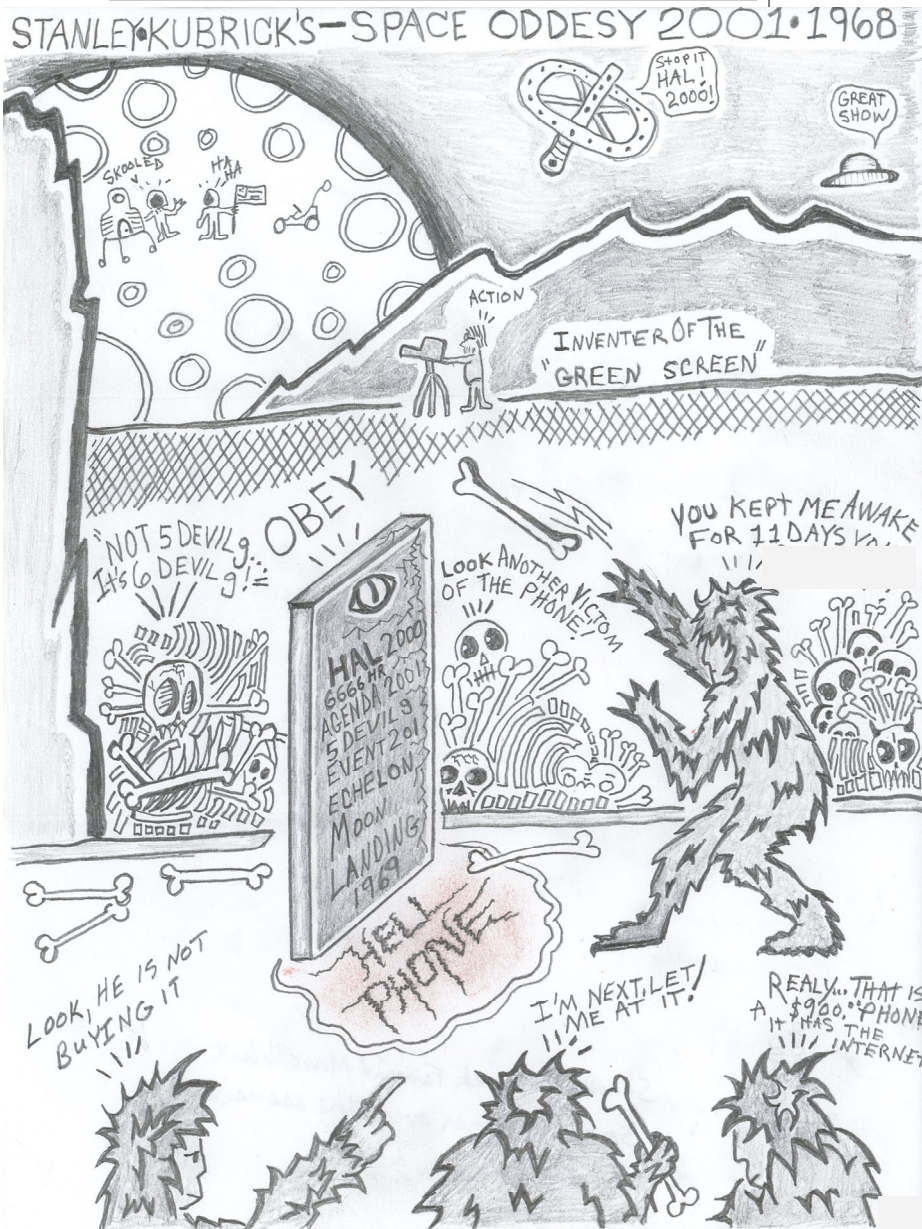 STANLEY•KUBRICK'S-SPACE ODDESY 2001•1968
STOP IT
HAL!
2000!
GREAT
SHOW
SKOOLED
HA
HA
ACTION
INVENTER OF THE
"GREEN SCREEN"
OBEY
"NOT 5 DEVIL g..
It's 6 DEVIL g!"
LOOK ANOTHER VICTOM
OF THE PHONE!
YOU KEPT ME AWAKE
FOR 11 DAYS
HAL 2000
6666 HR
AGENDA 2001
5 DEVIL g
EVENT 201
ECHELON
MOON
LANDING
1969
HELL
PHONE
LOOK, HE IS NOT
BUYING IT
I'M NEXT, LET
ME AT IT!
REALY... THAT IS
A $900.00 PHONE
IT HAS THE
INTERNET